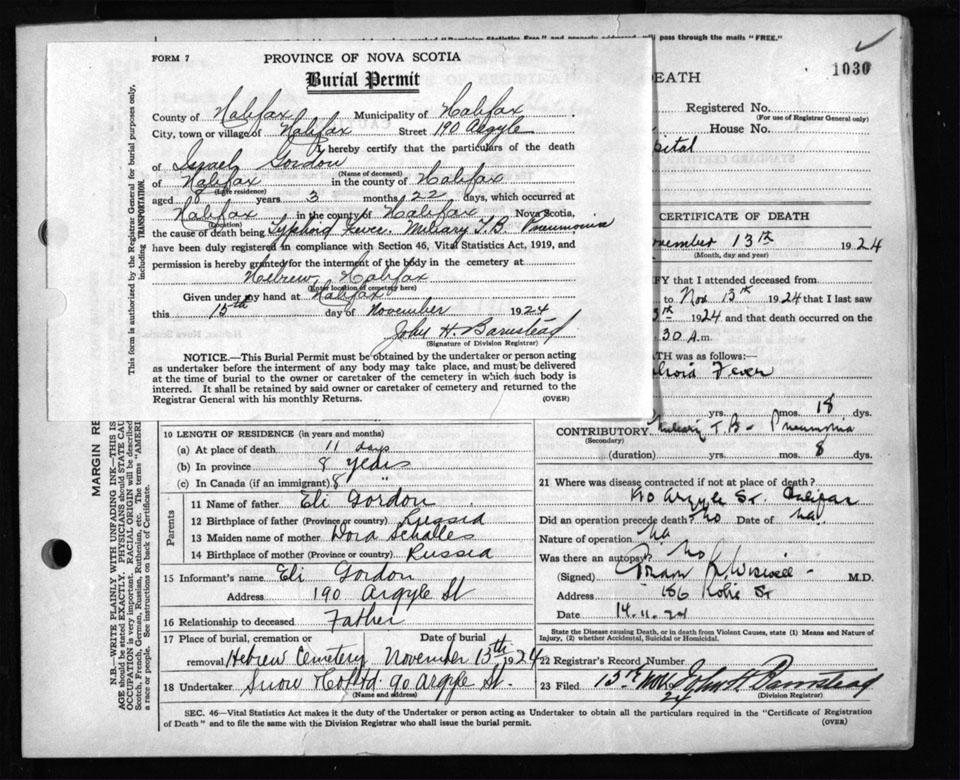 pass through the mails "FREE."
1030
DEATH
FORM 7
PROVINCE OF NOVA SCOTIA
Burial Permit
County of Halifax Municipality of Halifax
City, town or village of Halifax Street 190 Argyle
I hereby certify that the particulars of the death
of Israel Gordon
(Name of deceased)
of Halifax in the county of Halifax
(Late residence)
aged 8 years 3 months 22 days, which occurred at
Halifax in the county of Halifax Nova Scotia,
(Location)
the cause of death being Typhoid Fever. Miliary T.B. Pneumonia
have been duly registered in compliance with Section 46, Vital Statistics Act, 1919, and
permission is hereby granted for the interment of the body in the cemetery at
Hebrew, Halifax
(Enter location of cemetery here)
Given under my hand at Halifax
this 15th day of November 1924
John H. Barnstead
(Signature of Division Registrar)
NOTICE.—This Burial Permit must be obtained by the undertaker or person acting
as undertaker before the interment of any body may take place, and must be delivered
at the time of burial to the owner or caretaker of the cemetery in which such body is
interred. It shall be retained by said owner or caretaker of cemetery and returned to the
Registrar General with his monthly Returns. (OVER)
This form is authorized by the Registrar General for burial purposes only,
including TRANSPORTATION.
Registered No.
(For use of Registrar General only)
House No.
pital
CERTIFICATE OF DEATH
November 13th 1924
(Month, day and year)
IFY that I attended deceased from
to Nov 13th 1924 that I last saw
1924 and that death occurred on the
30 A.m.
ATH was as follows:
Fever
yrs. mos. 18 dys.
CONTRIBUTORY Miliary T.B— Pneumonia
(Secondary)
(duration) yrs. mos. 8 dys.
MARGIN RE
N.B.—WRITE PLAINLY WITH UNFADING INK—THIS IS
AGE should be stated EXACTLY. PHYSICIANS should STATE CAU
OCCUPATION is very important. RACIAL ORIGIN will be described
Scotch, French, German, Russian, Ruthenian, etc. The terms "AMERI
a race or people. See instructions on back of Certificate.
10 LENGTH OF RESIDENCE (in years and months)
(a) At place of death 11 days
(b) In province 8 years
(c) In Canada (if an immigrant) 8 "
Parents
11 Name of father Eli Gordon
12 Birthplace of father (Province or country) Russia
13 Maiden name of mother Dora Schalles
14 Birthplace of mother (Province or country) Russia
15 Informant's name Eli Gordon
Address 190 Argyle St
16 Relationship to deceased Father
17 Place of burial, cremation or Date of burial
removal Hebrew Cemetery November 15th 1924
18 Undertaker Snow & Co Ltd. 90 Argyle St.
(Name and address)
21 Where was disease contracted if not at place of death?
190 Argyle St. Halifax
Did an operation precede death? No Date of na.
Nature of operation na
Was there an autopsy? No
(Signed) M.D.
Address 156 Robie St
Date 14.11.24
State the Disease causing Death, or in death from Violent Causes, state (1) Means and Nature of
Injury, (2) whether Accidental, Suicidal or Homicidal.
22 Registrar's Record Number
23 Filed 15th Nov 24 John H Barnstead
(Division Registrar)
SEC. 46—Vital Statistics Act makes it the duty of the Undertaker or person acting as Undertaker to obtain all the particulars required in the "Certificate of Registration
of Death" and to file the same with the Division Registrar who shall issue the burial permit. (OVER)